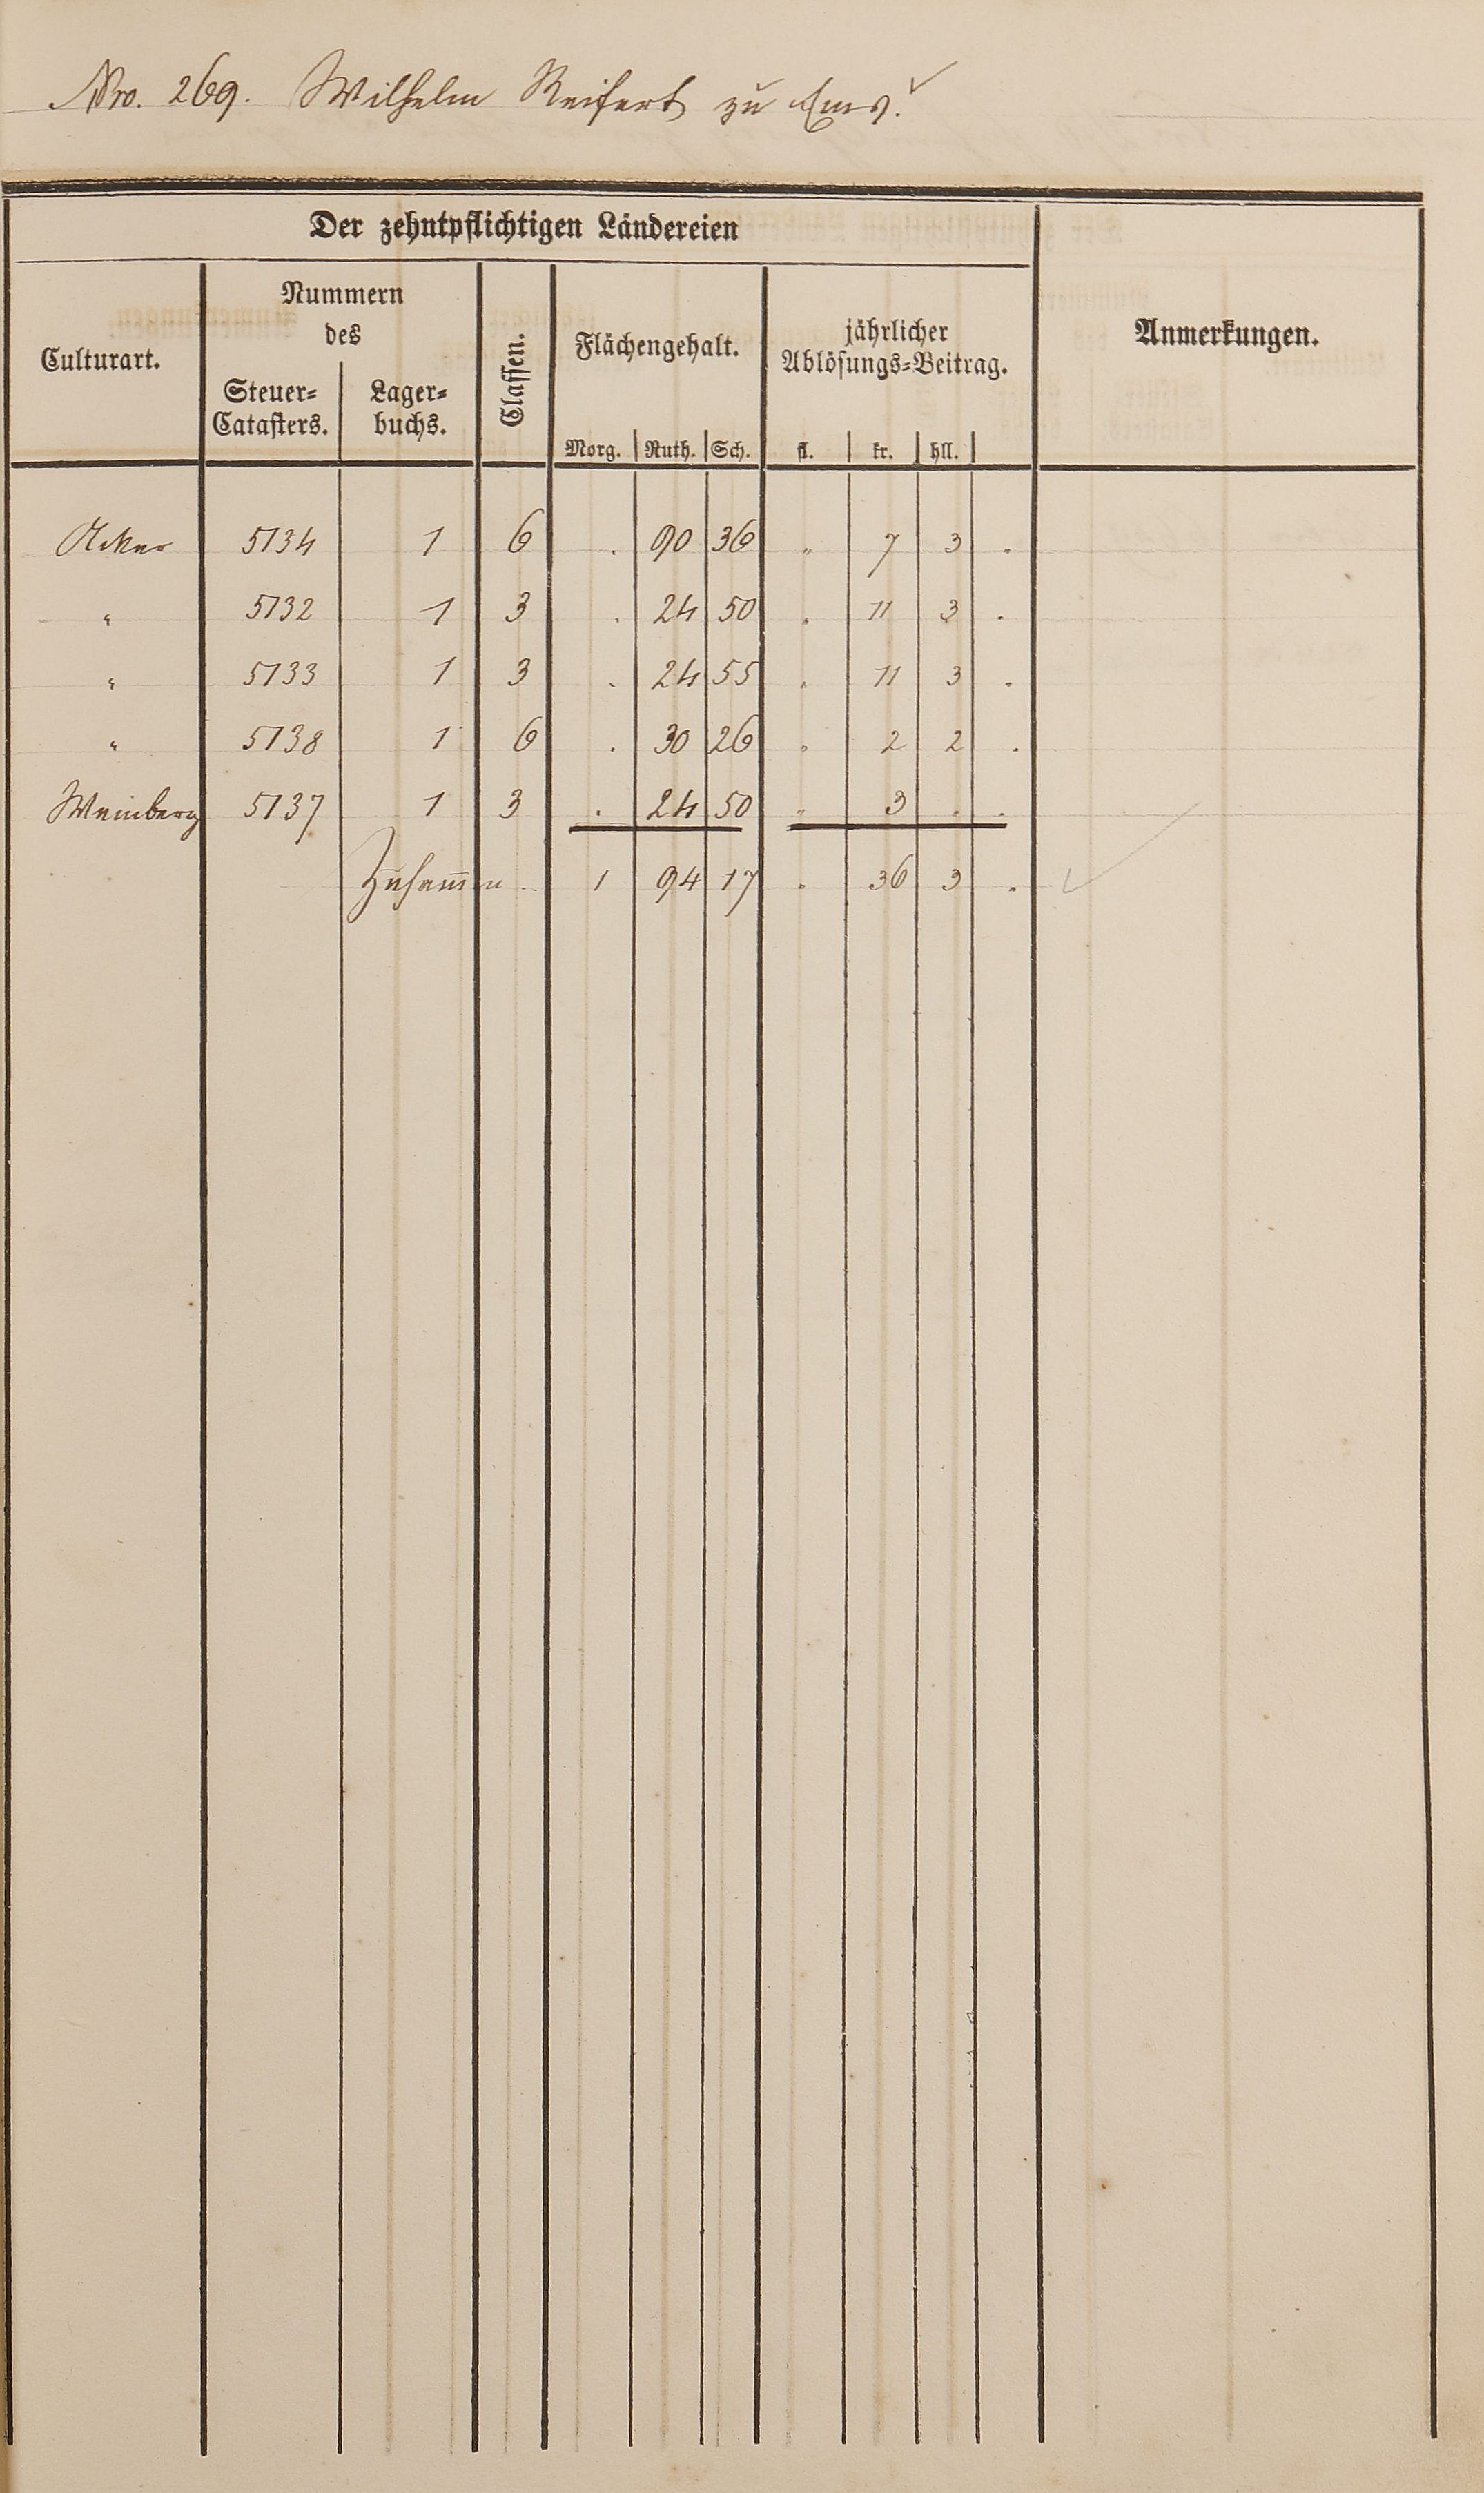 Nro. 269. Wilhelm Reifert zu Ems.
Der zehntpflichtigen Ländereien
Culturart.
Nummern
des
Steuer=
Catasters.
Lager=
buchs.
Classen.
Flächengehalt.
Morg. Ruth. Sch.
jährlicher
Ablösungs=Beitrag.
fl. kr. hll.
Anmerkungen.
Acker 5134 1 6 . 90 36 „ 7 3 .
„ 5132 1 3 . 24 50 . 11 3 .
„ 5133 1 3 . 24 55 „ 11 3 .
„ 5138 1 6 . 30 26 „ 2 2 .
Weinberg 5137 1 3 . 24 50 „ 3 . .
Zusam̅en 1 94 17 . 36 3 .